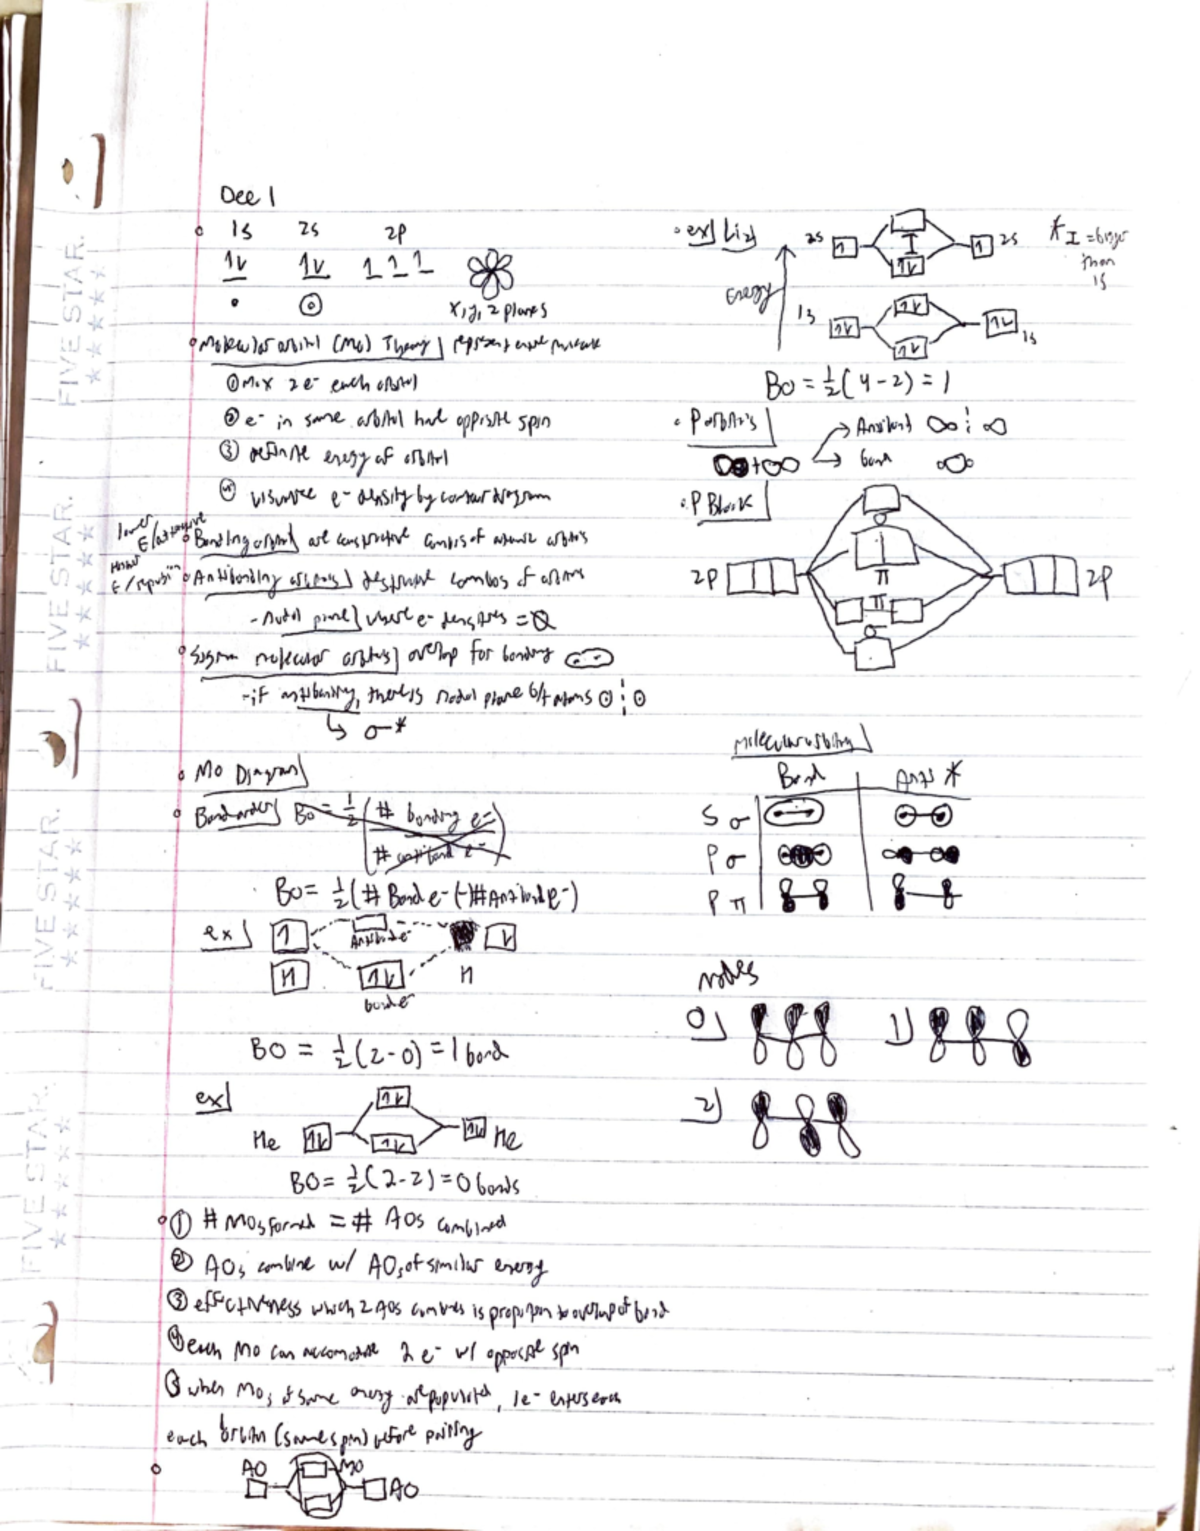 Dec 1
1s 2s 2p
x, y, z planes
Molecular orbital (MO) Theory represent entire molecule
① Max 2 e- each orbital
② e- in same orbital have opposite spin
③ definite energy of orbital
④ visualize e- density by contour diagram
lower E/attractive
Bonding orbital are constructive combos of atomic orbitals
Higher E/repulsion
Antibonding orbitals destructive combos of orbitals
- Nodal plane where e- densities = 0
Sigma molecular orbitals overlap for bonding
- if antibonding, there is nodal plane b/t atoms
↳ σ*
MO Diagram
Bond order BO = 1/2 (# bonding e- / # antibond e-)
BO = 1/2 (# Bond e- (-) # Antibond e-)
ex
Antibond e-
H H
bond e-
BO = 1/2 (2-0) = 1 bond
ex
He He
BO = 1/2 (2-2) = 0 bonds
① # MOs formed = # AOs combined
② AOs combine w/ AOs of similar energy
③ effectiveness which 2 AOs combines is proportion to overlap of bond
④ each MO can accomodate 2 e- w/ opposite spin
⑤ when MOs of same energy are populated, 1e- enters each
each orbital (same spin) before pairing
AO MO AO
ex Li2
2s 2s
* I = bigger than 1s
Energy
1s 1s
BO = 1/2 (4-2) = 1
P orbitals
Antibond
Bond
P Block
σ
2p π 2p
π
σ
Molecular orbitals
Bond Anti *
S σ
P σ
P π
nodes
0) 1)
2)
FIVE STAR.
FIVE STAR.
FIVE STAR.
FIVE STAR.